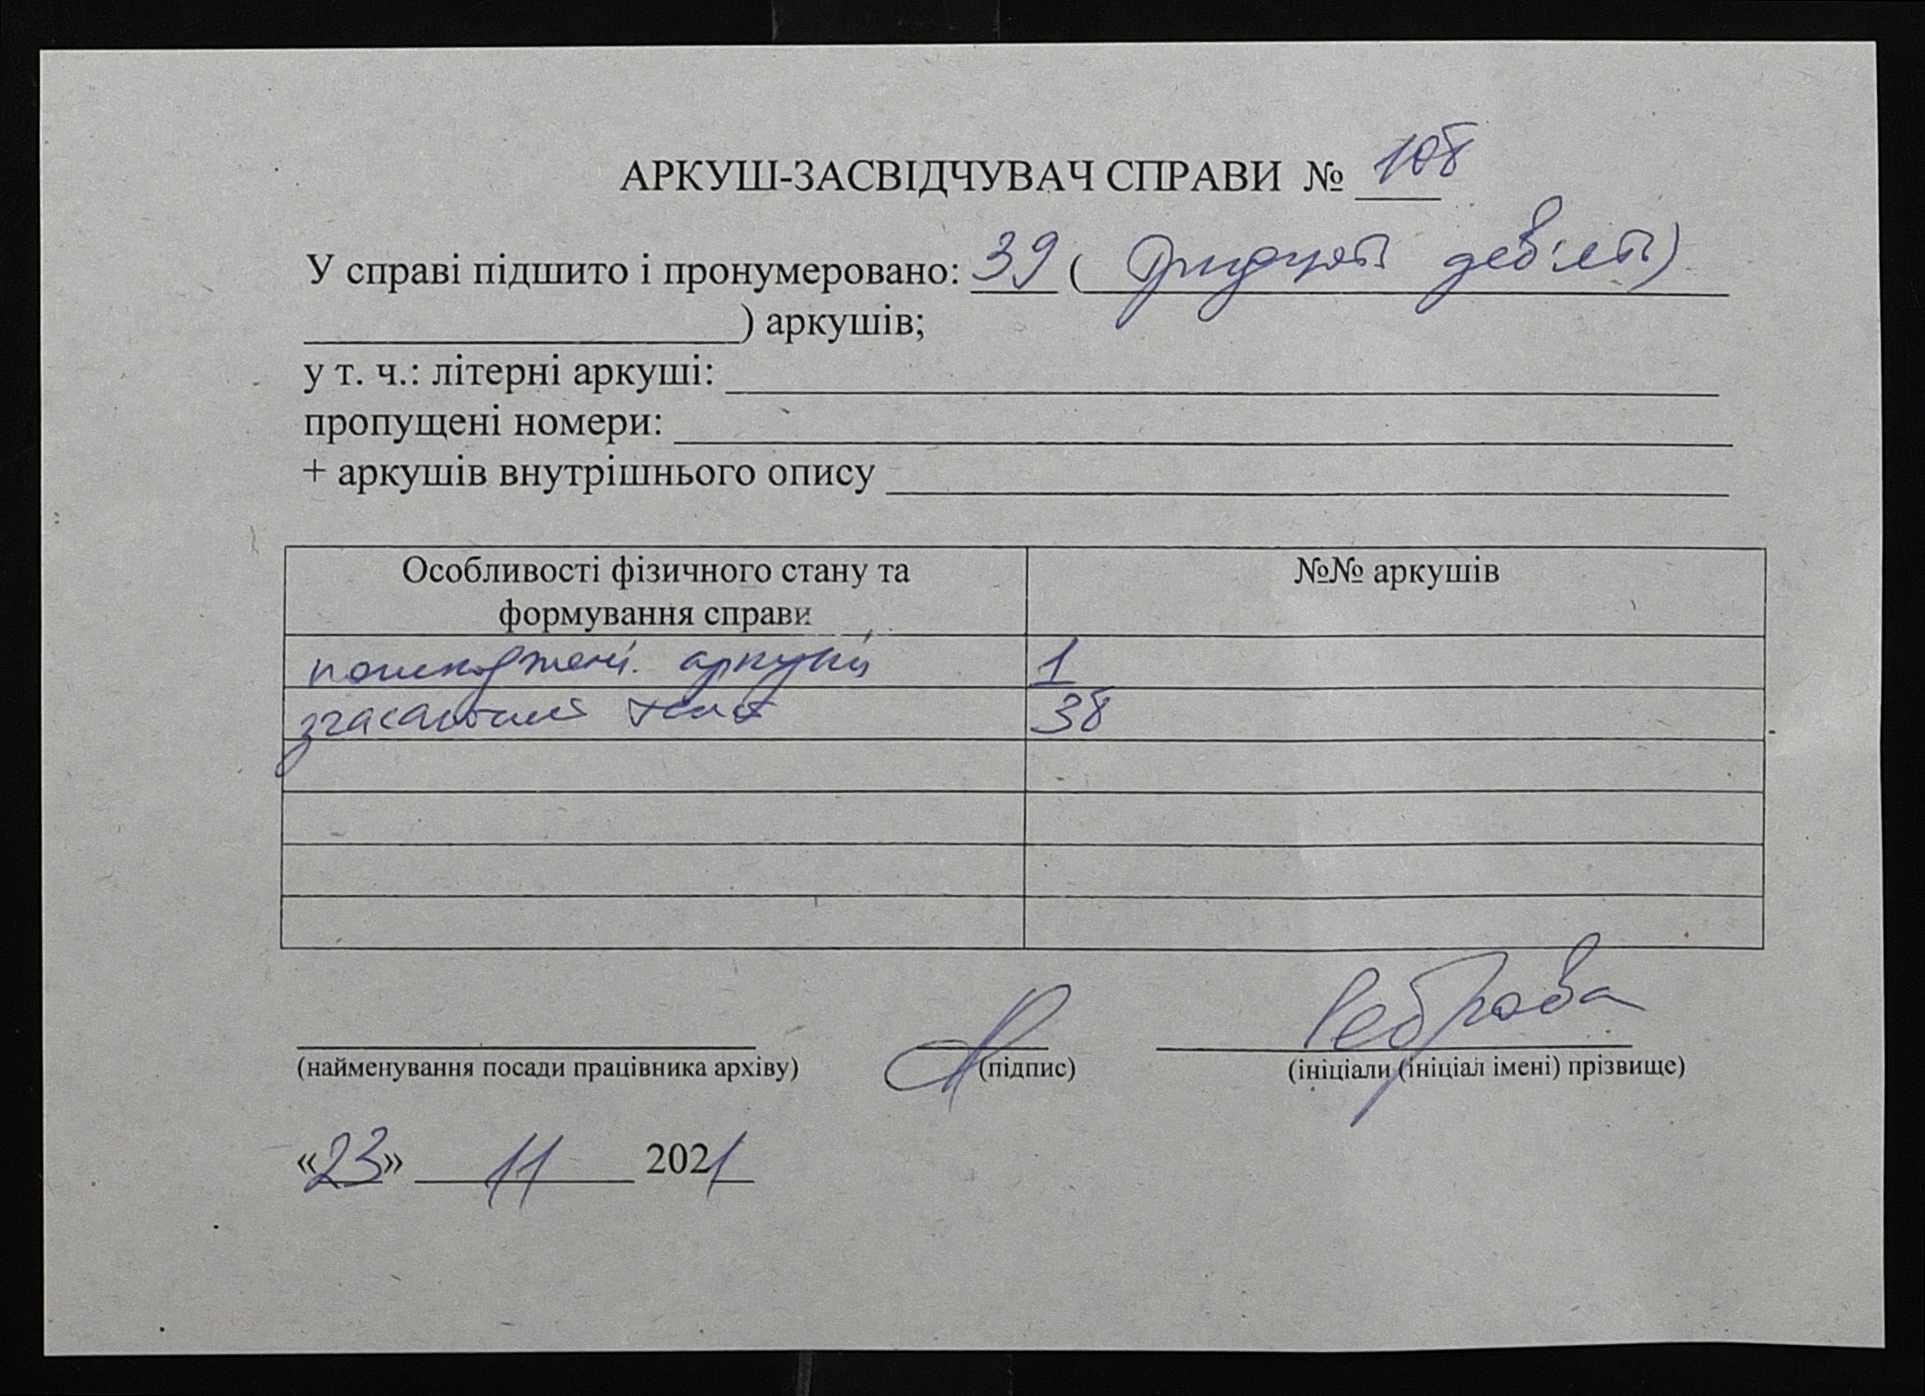 АРКУШ-ЗАСВІДЧУВАЧ СПРАВИ № 108
У справі підшито і пронумеровано: 39 ( тридцять дев'ять)
) аркушів;
у т. ч.: літерні аркуші:
пропущені номери:
+ аркушів внутрішнього опису
Особливості фізичного стану та формування справи
№№ аркушів
пошкоджені аркуші 1
згасаючий текст 38
Реброва
(найменування посади працівника архіву) (підпис) (ініціали (ініціал імені) прізвище)
«23» 11 2021